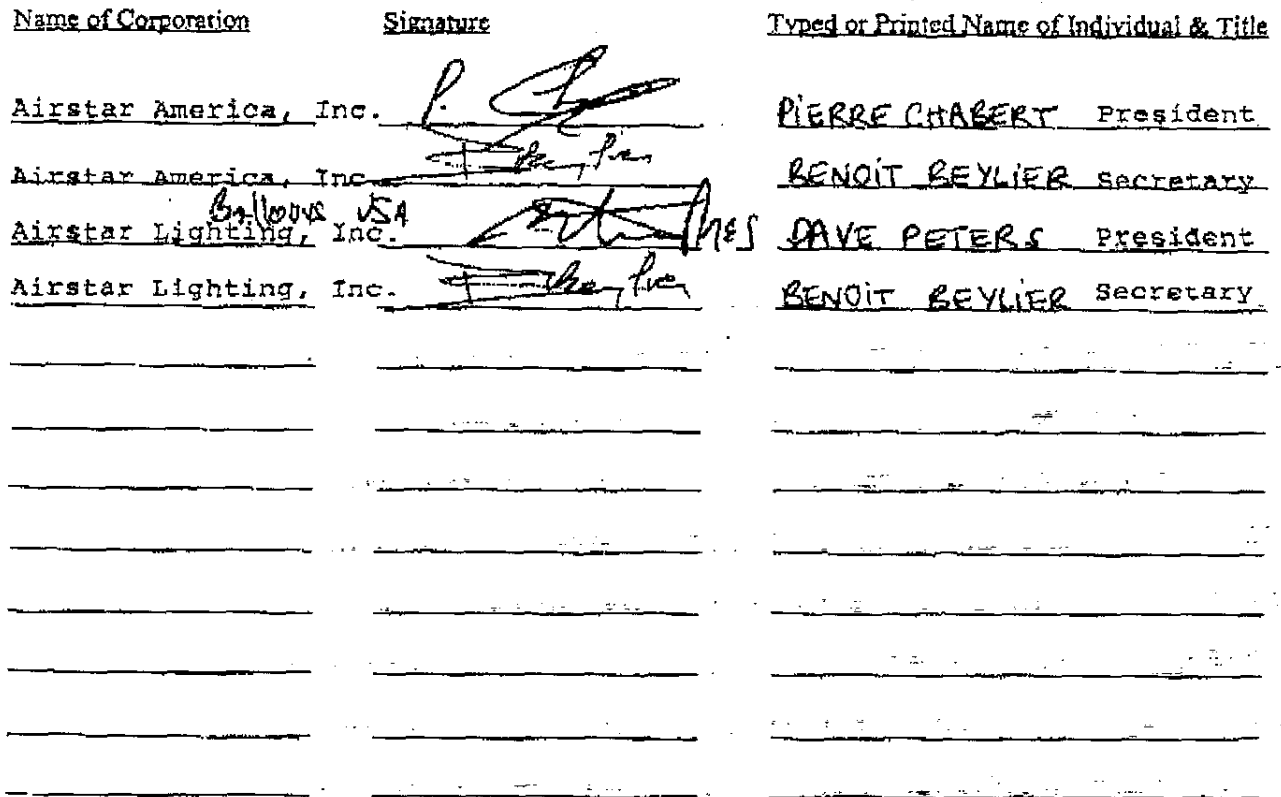 Name of Corporation Signature Typed or Printed Name of Individual & Title
Airstar America, Inc. P. PIERRE CHABERT President
Airstar America, Inc. BENOIT BEYLIER Secretary
Balloons USA
Airstar Lighting, Inc. DAVE PETERS President
Airstar Lighting, Inc. BENOIT BEYLIER Secretary